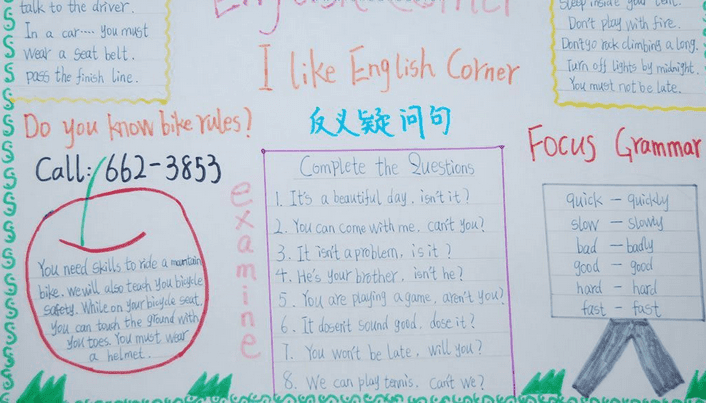 talk to the driver.
In a car.... you must
wear a seat belt.
pass the finish line.
I like English Corner
sleep inside your tent.
Don't play with fire.
Don't go rock climbing a long.
Turn off lights by midnight.
You must not be late.
Do you know bike rules?
Call: 662-3853
You need skills to ride a mantain
bike. we will also teach you bicycle
safety. While on your bicycle seat.
you can touch the ground with
you toes. You must wear
a helmet.
examine
反义疑问句
Complete the Questions
1. It's a beautiful day, isn't it?
2. You can come with me, can't you?
3. It isn't a problem, is it?
4. He's your brother, isn't he?
5. You are playing a game, aren't you?
6. It doesn't sound good, dose it?
7. You won't be late, will you?
8. We can play tennis, can't we?
Focus Grammar
quick — quickly
slow — slowly
bad — badly
good — good
hard — hard
fast — fast